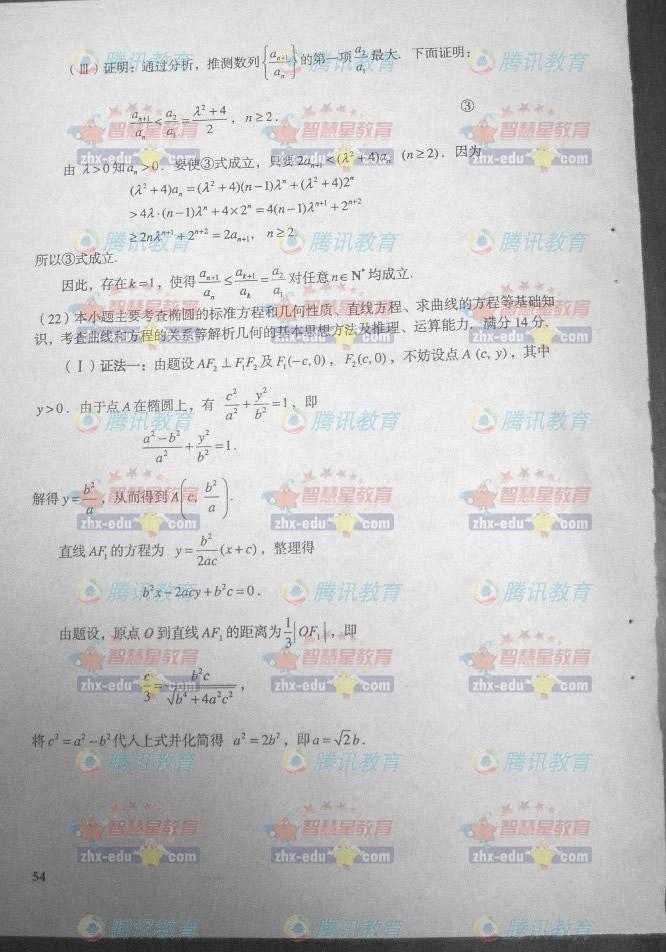 （Ⅲ）证明：通过分析，推测数列{a_{n+1}/a_n}的第一项a_2/a_1最大．下面证明：
a_{n+1}/a_n < a_2/a_1 = (λ²+4)/2，n≥2． ③
由 λ>0知a_n>0．要使③式成立，只要2a_{n+1}<(λ²+4)a_n (n≥2)．因为
(λ²+4)a_n=(λ²+4)(n−1)λ^n+(λ²+4)2^n
>4λ·(n−1)λ^n+4×2^n=4(n−1)λ^{n+1}+2^{n+2}
≥2nλ^{n+1}+2^{n+2}=2a_{n+1}，n≥2，
所以③式成立．
因此，存在k=1，使得a_{n+1}/a_n ≤ a_{k+1}/a_k = a_2/a_1 对任意n∈N*均成立．
（22）本小题主要考查椭圆的标准方程和几何性质、直线方程、求曲线的方程等基础知
识，考查曲线和方程的关系等解析几何的基本思想方法及推理、运算能力．满分14分．
（Ⅰ）证法一：由题设AF_2⊥F_1F_2及F_1(−c,0)，F_2(c,0)，不妨设点A (c, y)，其中
y>0．由于点A在椭圆上，有 c²/a²+y²/b²=1，即
(a²−b²)/a²+y²/b²=1．
解得y=b²/a，从而得到A(c, b²/a)．
直线AF_1的方程为 y=b²/(2ac)(x+c)，整理得
b²x−2acy+b²c=0．
由题设，原点O到直线AF_1的距离为1/3|OF_1|，即
c/3=b²c/√(b⁴+4a²c²)，
将c²=a²−b²代人上式并化简得 a²=2b²，即a=√2b．
54
腾讯教育
智慧星教育
zhx-edu com